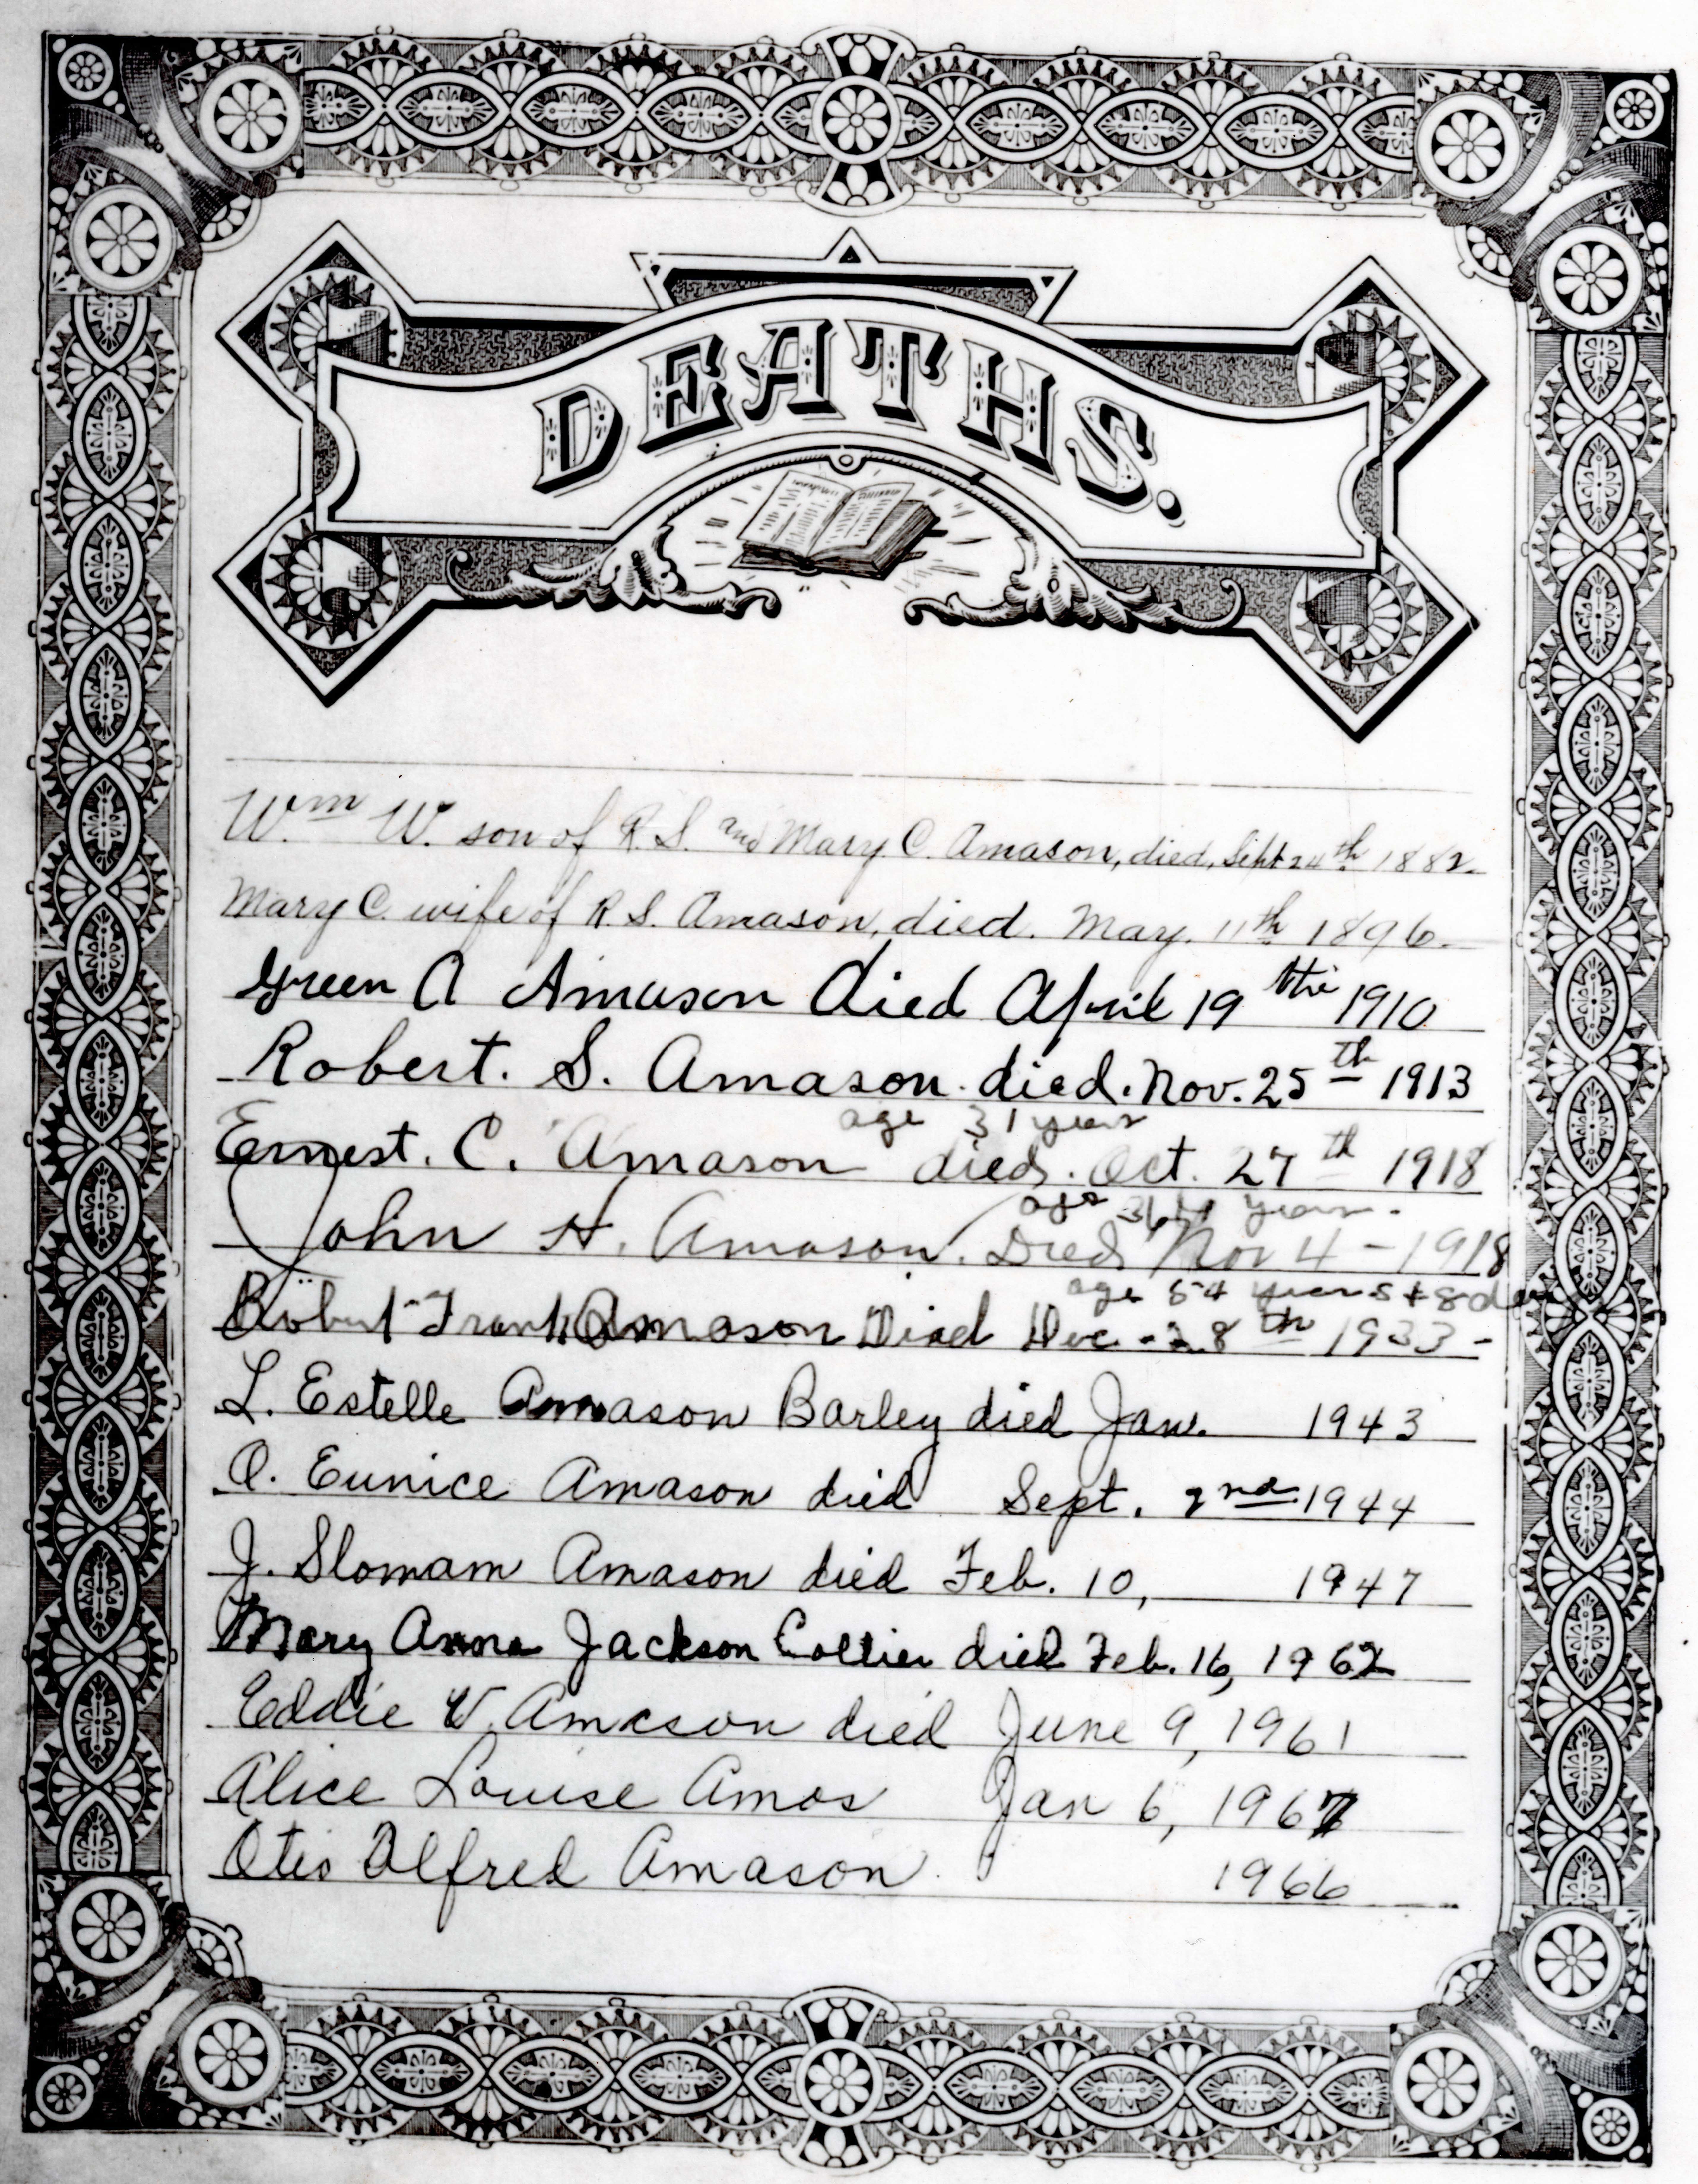 DEATHS.
Wm W. son of R.S. and Mary C. Amason, died, Sept 24th 1882.
Mary C. wife of R.S. Amason, died. May. 11th 1896.
Green A Amason Died April 19th 1910
Robert. S. Amason. died. Nov. 25th 1913
age 31 years
Ernest. C. Amason died. Oct. 27th 1918
age years.
John H. Amason. Died Nov 4 - 1918
age 54 years + 8 days
Robert Frank Amason Died Dec - 28th 1933 -
L. Estelle Amason Barley died Jan. 1943
O. Eunice Amason died Sept. 2nd 1944
J. Slomam Amason died Feb. 10, 1947
Mary Anna Jackson Collier died Feb. 16, 1962
Eddie V. Amason died June 9, 1961
Alice Louise Amos Jan 6, 1967
Otis Alfred Amason 1966